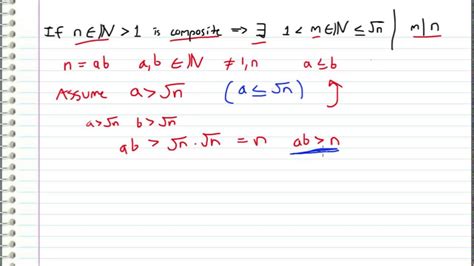 If n∈ℕ > 1 is composite ⟹ ∃ 1 < m∈ℕ ≤ √n | m|n
n = ab a,b ∈ ℕ ≠ 1,n a ≤ b
Assume a > √n (a ≤ √n)
a > √n b > √n
ab > √n · √n = n ab > n